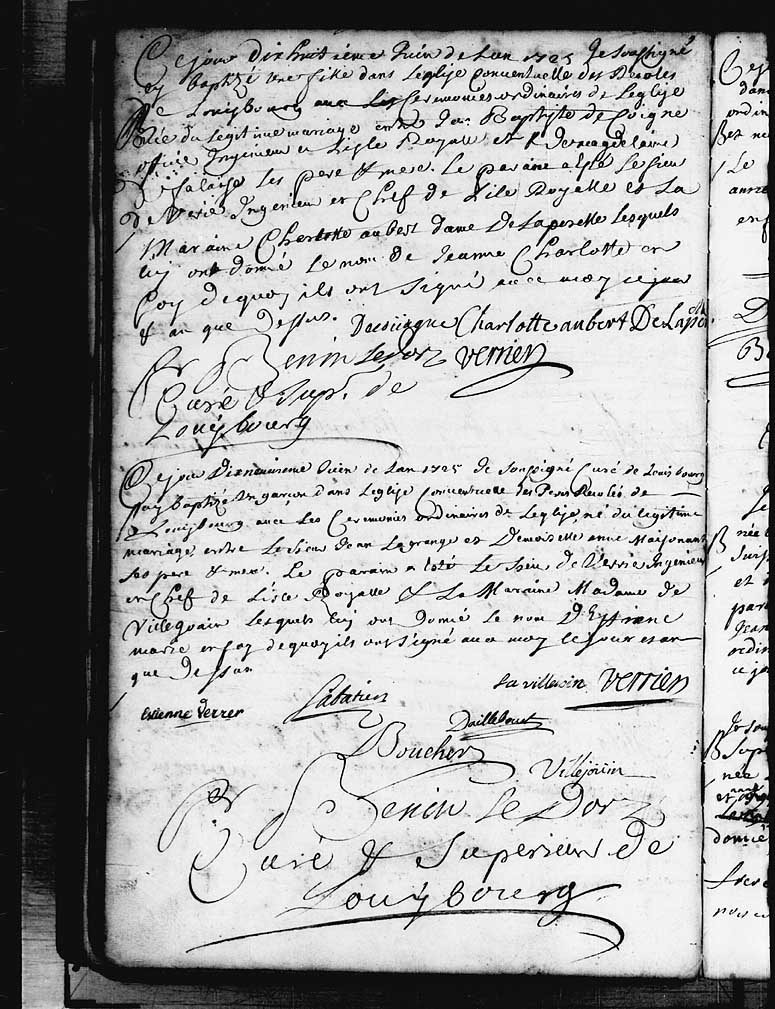 Ce jour dixhuit ième Juin de Lan 1725 Je soussigné
ay baptizé une fille dans Leglise Conventuelle des Recolés
de Louisbourg avec Les Ceremonies ordinaires de Leglise
Née du Legitime mariage entre Jean Baptiste de Coigne
officié Ingenieur a Lisle Royalle et
Les pere & mere. Le paraine a esté Le Sieur
de Verié Ingenieur en Chef de L'ile Royalle et La
Maraine Charlotte aubert dame De Laperelle Lesquels
luy ont donné Le nom de Jeanne Charlotte en
foy de quoy ils ont signé avec moy ce jour
& an que Dessus. Decouagne Charlotte aubert De Laper
fr Benin Le Dorz Verrier
Curé & Sup.r de
Louisbourg
Ce jour Dixneuvieme Juien de Lan 1725 Je Soussigné Curé de Louisbourg
ay Baptizé Un garcon dans Leglise Conventuelle des Peres Recolés de
Louisbourg avec Les Ceremonies ordinaires de Leglise, né du legitime
mariage entre Le Sieur Jean Lagrange et Demoiselle anne Maisonant
Ses pere & mere. Le parain a esté Le Sieur de Verrié Ingenieur
en Chef de L'isle Royalle & La Maraine Madame de
Villejouain Lesquels luy ont donné Le nom D'Estienne
marie en foy de quoy ils ont signé avec moy Le jour et an
que Dessus
La villejoin Verrier
Etienne Verrier Sabatier
Dailleboust
Boucher
Villejouin
fr Benin Le Dorz
Curé & Superieur de
Louisbourg